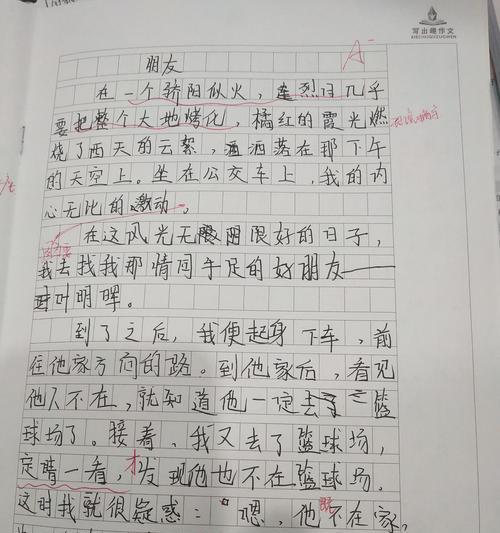 写出趣作文
XIECHUQUZUOWEN
A-
朋友
在一个骄阳似火，烈日几乎
要把整个大地烤化，橘红的霞光燃
烧了西天的云絮，洒落在那下午
的天空上。坐在公交车上，我的内
心无比的激动。
在这风光无限阴限好的日子，
我去找我那情同手足的好朋友——
叶明晖。
到了之后，我便起身下车，前
往他家方向的路。到他家后，看见
他人不在，就知道他一定去了篮
球场了。接着，我又去了篮球场，
定睛一看，才发现他也不在篮球场。
这时我就很疑惑：“嗯，他既不在家，